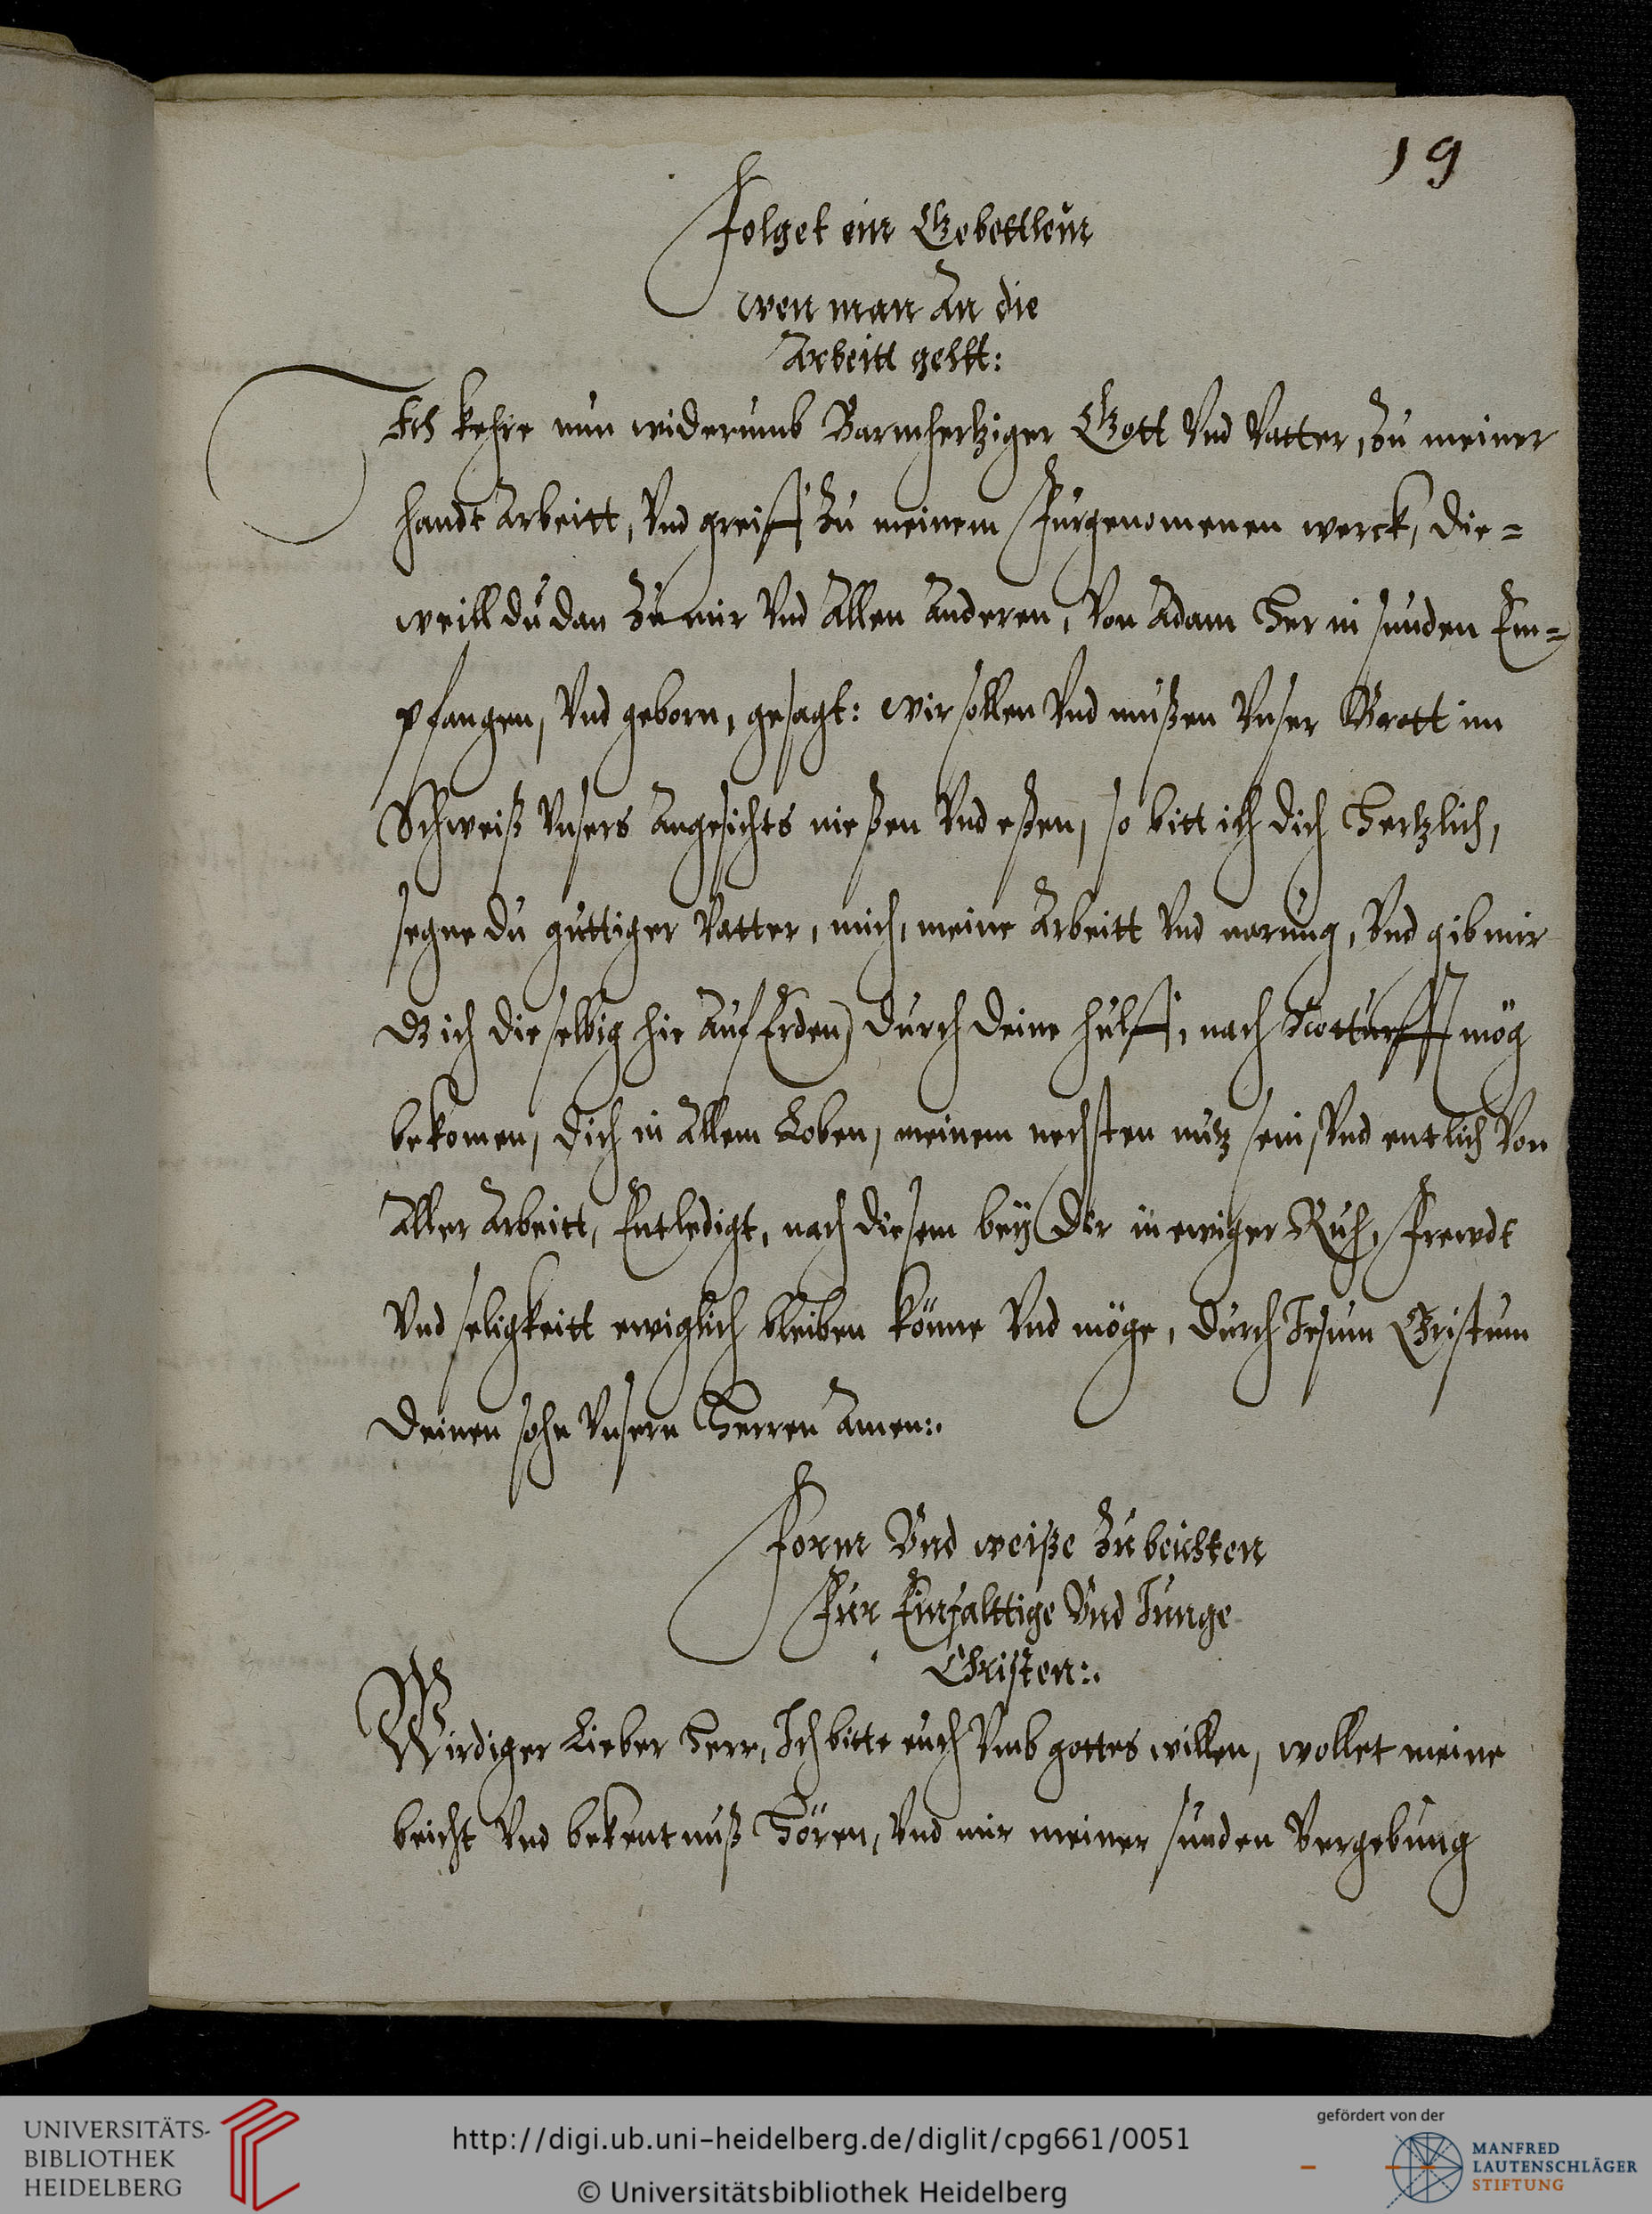 19
Folget ein Gebettlein
wen man An die
Arbeitt gehtt:
Ich kehre nun widerumb Barmhertziger Gott Vnd Vatter, Zu meiner
handt Arbeitt, Vnd greiff Zu meinem Furgenomenen werck, die=
weill du dan Zu mir Vnd Allen Anderen, Von Adam Her in sunden Em=
pfangen, Vnd geborn, gesagt: wir sollen Vnd mußen Vnser Brott im
Schweiß Vnsers Angesichts nießen Vnd eßen, so bitt ich dich Hertzlich,
segne du guttiger Vatter, mich, meine Arbeitt Vnd narung, Vnd gib mir
Dz ich dieselbig hie Auf Erden durch deine hulff, nach Notturfft mög
bekomen, dich in Allem Loben, meinem nechsten nutz sein Vnd entlich Von
Aller Arbeitt, Entledigt, nach diesem bey Dir in ewiger Ruh, Frewdt
Vnd seligkeitt ewiglich bleiben könne Vnd möge, durch Jesum Christum
deinen sohn Vnsern Herren Amen:.
Form Vnd weiße Zu beichten
Fur Einfalttige Vnd Junge
Christen:.
Wirdiger Lieber Herr, Ich bitte euch Vmb gottes willen, wollet meine
beicht Vnd bekentnuß Hören, Vnd mir meiner sunden Vergebung
UNIVERSITÄTS-
BIBLIOTHEK
HEIDELBERG
http://digi.ub.uni-heidelberg.de/diglit/cpg661/0051
© Universitätsbibliothek Heidelberg
gefördert von der
MANFRED
LAUTENSCHLÄGER
STIFTUNG